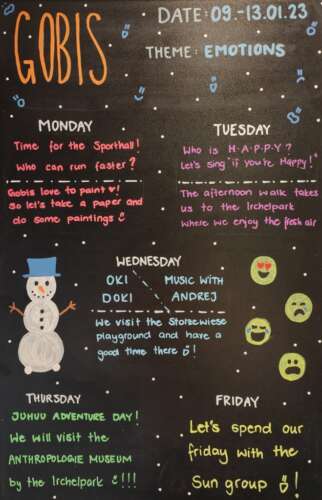 GOBIS
DATE: 09.-13.01.23
THEME: EMOTIONS
MONDAY
Time for the Sporthall!
Who can run faster?
Gobis love to paint ♥!
So let's take a paper and
do some paintings
TUESDAY
Who is H-A-P-P-Y?
Let's sing "if you're Happy!"
The afternoon walk takes
us to the Irchelpark
where we enjoy the fresh air
WEDNESDAY
OKI
DOKI
MUSIC WITH
ANDREJ
We visit the Storzewiese
playground and have a
good time there !
THURSDAY
JUHUU ADVENTURE DAY!
We will visit the
ANTHROPOLOGIE MUSEUM
by the Irchelpark !!!
FRIDAY
Let's spend our
friday with the
Sun group !